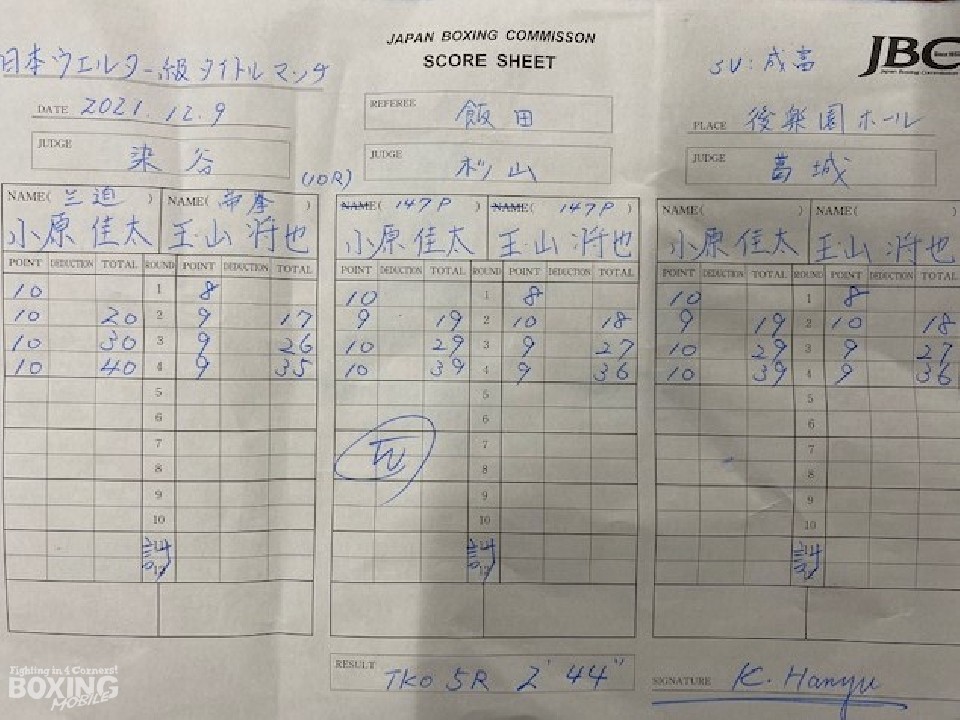 JAPAN BOXING COMMISSON
SCORE SHEET
日本ウエルター級タイトルマッチ
SU:成富
JBC
Japan Boxing Commission
DATE 2021.12.9
REFEREE 飯田
PLACE 後楽園ホール
JUDGE 染谷
JUDGE 杉山
JUDGE 葛城
(10R)
NAME(三迫) NAME(帝拳)
NAME( 147P NAME( 147P )
NAME( ) NAME( )
小原佳太 玉山将也
小原佳太 玉山将也
小原佳太 玉山将也
POINT DEDUCTION TOTAL ROUND POINT DEDUCTION TOTAL
10 1 8
10 20 2 9 17
10 30 3 9 26
10 40 4 9 35
5
6
7
8
9
10
計
POINT DEDUCTION TOTAL ROUND POINT DEDUCTION TOTAL
10 1 8
9 19 2 10 18
10 29 3 9 27
10 39 4 9 36
5
6
7
8
9
10
計
POINT DEDUCTION TOTAL ROUND POINT DEDUCTION TOTAL
10 1 8
9 19 2 10 18
10 29 3 9 27
10 39 4 9 36
5
6
7
8
9
10
計
RESULT TKO 5R 2'44"
SIGNATURE K. Hanyu
Fighting in 4 Corners!
BOXING
MOBILE